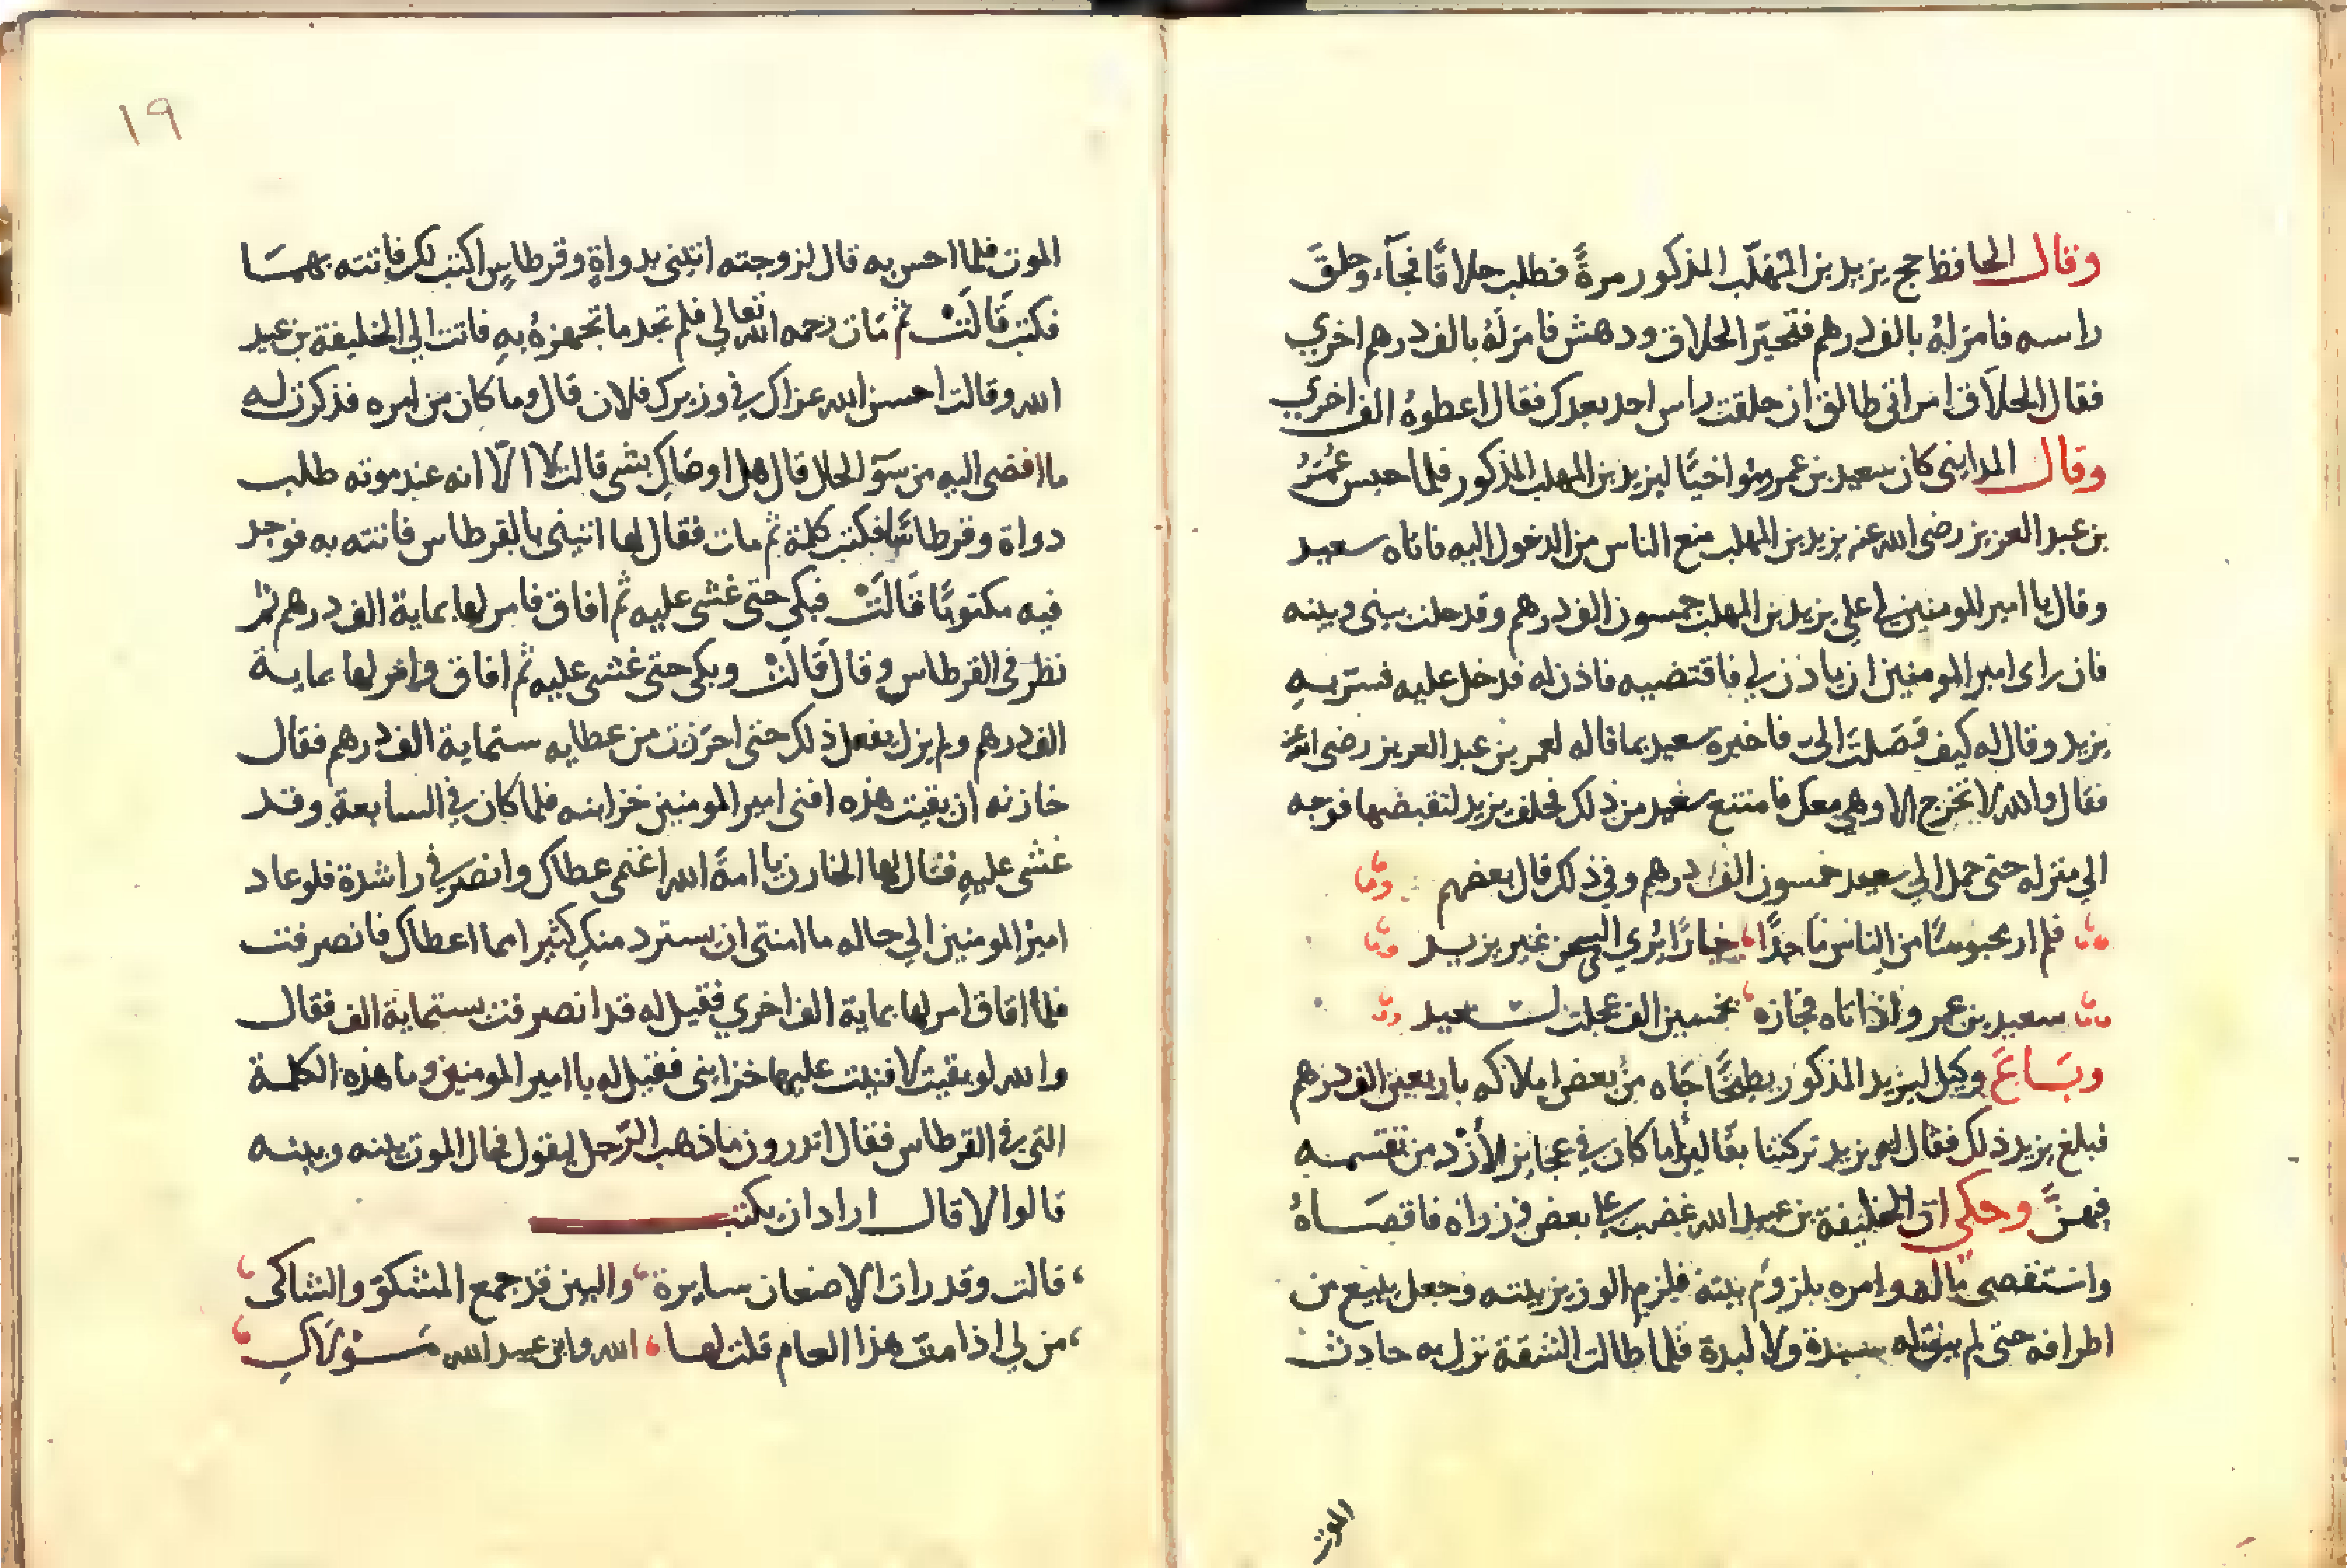 وقال الحافظ حج يزيد بن المهلّب المذكور مرةً فطلب حلاقًا فجآء وحلقَ
راسه فامر لهُ بالف درهم فتحيّر الحلاق ودهش فامر لهُ بالف درهم اخري
فقال الحلاق امراتي طالق ان حلقت راس احد بعدك فقال اعطوهُ الف اخري
وقال المدايني كان سعيد بن عمرو مواخيًا ليزيد بن المهلب المذكور فلما حبس عُمَرُ
بن عبد العزيز رضى الله عنه يزيد بن المهلب منع الناس من الدخول اليه فاتاه سعيد
وقال يا امير المومنين لي علي يزيد بن المهلب خمسون الف درهم وقد حلت بيني وبينه
فان راى امير المومنين ان ياذن لي فاقتضيه فاذن له فدخل عليه فسّر بهِ
يزيد وقال له كيف وَصَلتَ اليّ فاخبره سعيد بما قاله لعمر بن عبد العزيز رضى الله عنه
فقال والله لا تخرج الا وهي معك فامتنع سعيد من ذلك فحلف يزيد لتقبضها فوجه
الي منزله حتى حمل الي سعيد خمسون الف درهم وفي ذلك قال بعضهم
فلم ار محبوسًا من الناس ماجدًا حبا زائري السجن غير يزيد
سعيد بن عمرو اذ اتاه مجازه بخمسين الف عجلت لسعيد
وبَاعَ وكيل ليزيد المذكور بطيخًا جَاه من بعض املاكه باربعين الف درهم
فبلغ يزيد ذلك فقال له يزيد تركتنا بقّالين اما كان في عجايز الأزْد من تقسمه
فيهنَّ وحكي ان الخليفة بن عبيد الله غضب علي بعض وزراه فاقصَاهُ
واستنقصى ماله وامره بلزوم بيته فلزم الوزير بيته وجعل يبيع من
اطرافه حتى لم يبق له سبدة ولا لبدة فلما طالت الشقة نزل به حادث
الموت
١٩
الموت فلما احس به قال لزوجته ائتيني بدواةٍ وقرطاسٍ اكتب لك فاتته بهمَا
فكتب قَالَتْ ثم مَات رحمه الله تعالي فلم تجد ما تجهزهُ بهِ فاتت الي الخليفة بن عبيد
الله وقالت احسن الله عزاك في وزيرك فلان قال وما كان من امره فذكرت له
ما افضى اليه من سَوَ الحال قال هل اوصَاكِ بشى قالت لا الّا انه عند موته طلب
دواة وقرطاسًا فكتب كلمة ثم مات فقال لها ائتيني بالقرطاس فاتته به فوجد
فيه مكتوبًا قَالَتْ فبكي حتى غشى عليه ثم افاق فامر لها بماية الف درهم ثم
نظر في القرطاس وقال قَالَتْ وبكى حتى غشى عليه ثم افاق وامر لها بماية
الف درهم ولم يزل يفعل ذلك حتى احرَزت من عطايه ستماية الف درهم فقال
خازنه ان بقيت هذه افنى امير المومنين خزاينه فلما كان في السابعة وقد
غشى عليهِ فقال لها الخازن يا امةَ الله اغنمي عطاك وانصرفي راشدة فلو عاد
اميرُ المومنين الي حاله ما امنتي ان يسترد منكِ كثيرا مما اعطاك فانصرفت
فلما افاق امر لها بماية الف اخري فقيل له قد انصرفت بستماية الف فقال
والله لو بقيت لافنيت عليها خزايني فقيل له يا امير المومنين وما هذه الكلمة
التي في القرطاس فقال اتدرون ما ذهب الرّجل ليقول فحال الموت بينه وبينه
قالوا لا قال اراد ان يكتب
قالت وقد رات الاضعان سايرة والبين قد جمع المشكوّ والشاكى
من لي اذا متّ هذا العام قلت لها الله وابن عبيد الله مَولاكِ